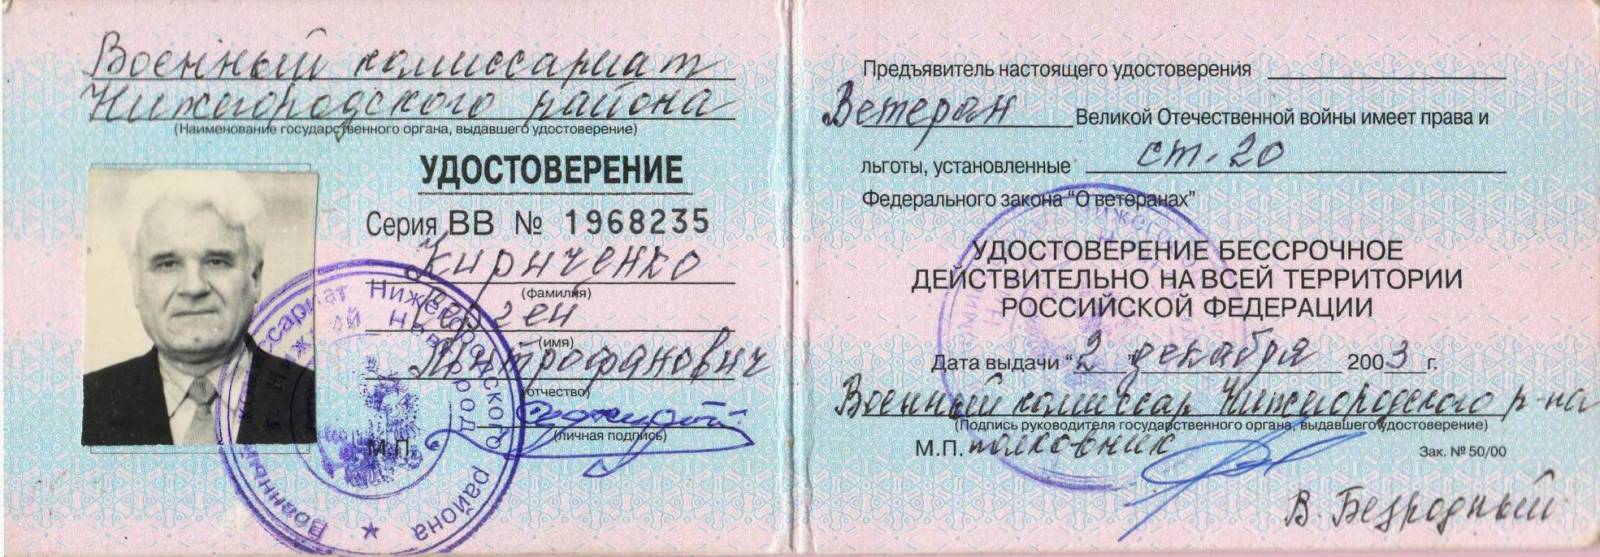 Военный комиссариат
Нижегородского района
(Наименование государственного органа, выдавшего удостоверение)
УДОСТОВЕРЕНИЕ
Серия ВВ № 1968235
Кириченко
(фамилия)
(имя)
Митрофанович
(отчество)
(личная подпись)
М.П.
Военный комиссариат Нижегородского района
Предъявитель настоящего удостоверения
Ветеран Великой Отечественной войны имеет права и
льготы, установленные ст. 20
Федерального закона "О ветеранах"
УДОСТОВЕРЕНИЕ БЕССРОЧНОЕ
ДЕЙСТВИТЕЛЬНО НА ВСЕЙ ТЕРРИТОРИИ
РОССИЙСКОЙ ФЕДЕРАЦИИ
Дата выдачи "2" декабря 2003 г.
Военный комиссар Нижегородского р-на
(Подпись руководителя государственного органа, выдавшего удостоверение)
М.П. полковник
Зак. № 50/00
В. Безродный